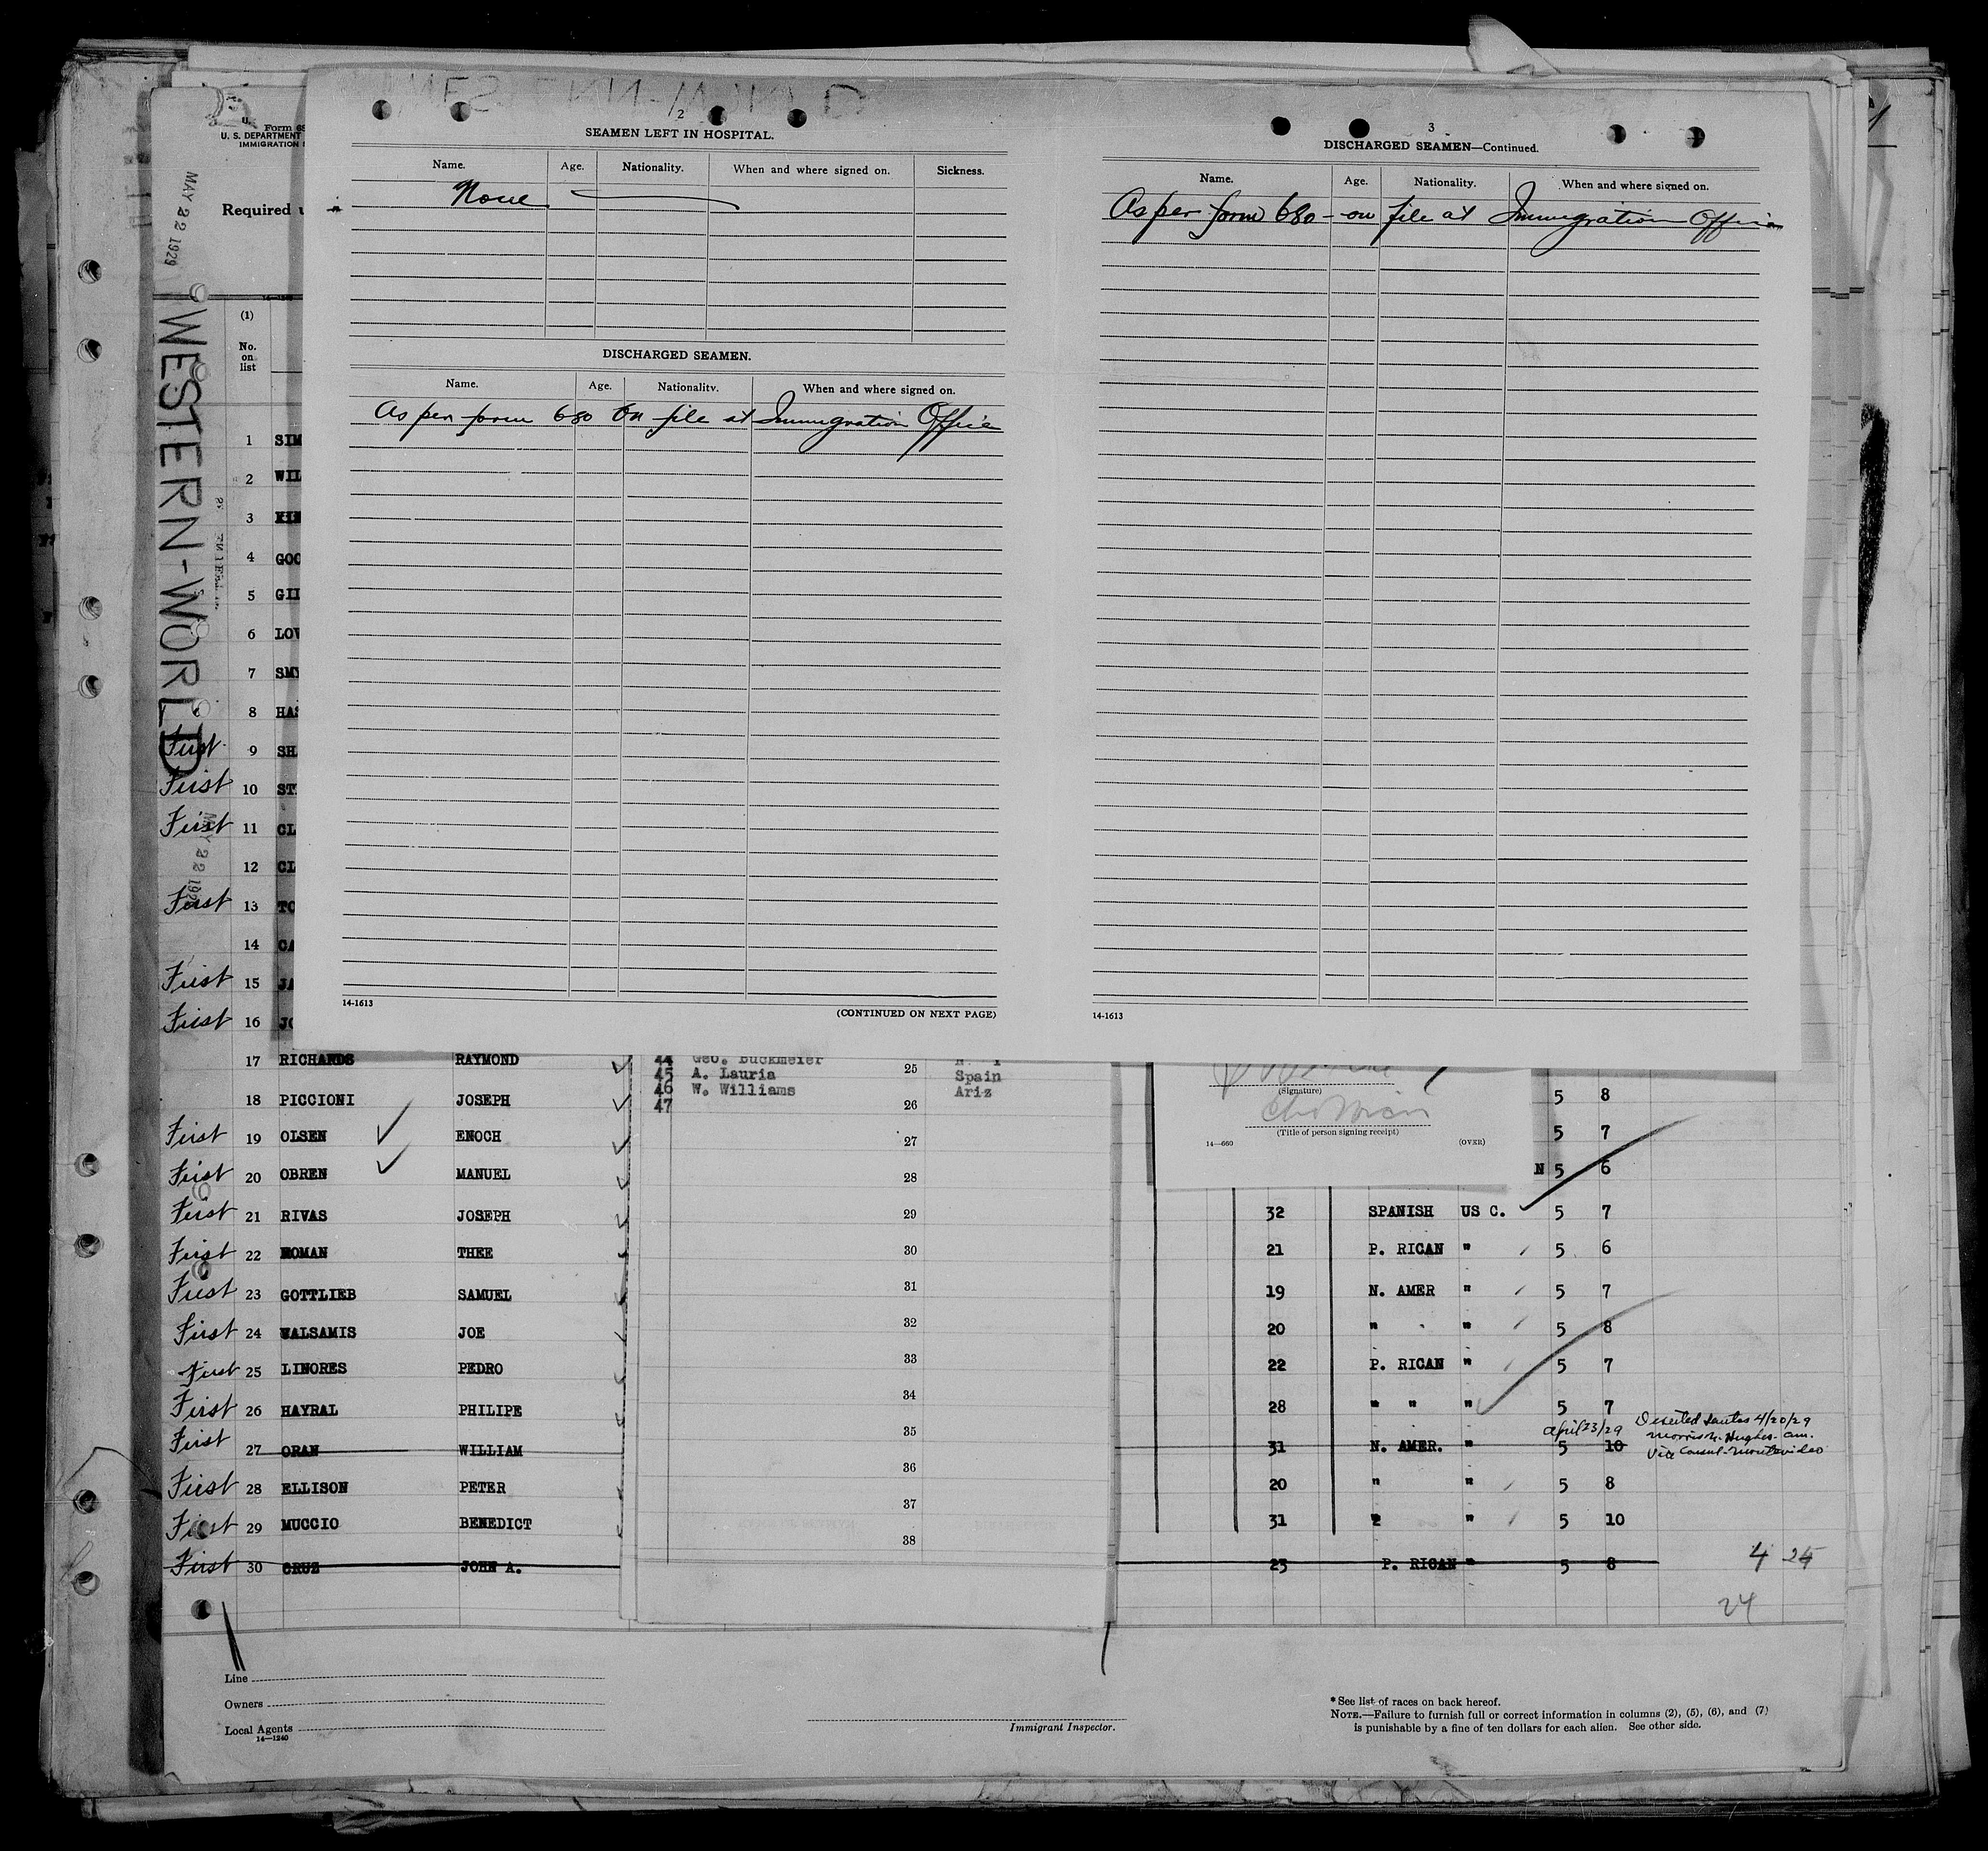 2
SEAMEN LEFT IN HOSPITAL.
Name. Age. Nationality. When and where signed on. Sickness.
None
DISCHARGED SEAMEN.
Name. Age. Nationality. When and where signed on.
As per form 680 on file at Immigration Office
14-1613
(CONTINUED ON NEXT PAGE)
3
DISCHARGED SEAMEN—Continued.
Name. Age. Nationality. When and where signed on.
As per form 680 - on file at Immigration Office
14-1613
U. S. DEPARTMENT
IMMIGRATION
MAY 22 1929
Required
WESTERN-WORLD
(1)
No. on list
1 SIM
2 WIL
3
4 GOO
5 GIL
6 LOV
7 SMY
8 HAS
First 9 SH
First 10 ST
First 11 CL
12 CL
First 13 TO
14 CA
First 15 JA
First 16 JO
17 RICHARDS RAYMOND
18 PICCIONI JOSEPH 5 8
First 19 OLSEN ENOCH 5 7
First 20 OBREN MANUEL N 5 6
First 21 RIVAS JOSEPH 32 SPANISH US C. 5 7
First 22 ROMAN THEE 21 P. RICAN " 5 6
First 23 GOTTLIEB SAMUEL 19 N. AMER " 5 7
First 24 WALSAMIS JOE 20 " " 5 8
First 25 LINORES PEDRO 22 P. RICAN " 5 7
First 26 HAYRAL PHILIPE 28 " " " 5 7
First 27 ORAN WILLIAM 31 N. AMER. " 5 10
April 23/29
Deserted Santos 4/20/29
Morris N. Hughes - Am.
Vice Consul - Montevideo
First 28 ELLISON PETER 20 " " 5 8
First 29 MUCCIO BENEDICT 31 " 5 10
First 30 CRUZ JOHN A. 23 P. RICAN " 5 8
4 24
24
44 Geo. Buckmeier
45 A. Lauria Spain
46 W. Williams Ariz
47
25
26
27
28
29
30
31
32
33
34
35
36
37
38
(Signature)
(Title of person signing receipt)
14—660 (OVER)
Line
Owners
Local Agents
14—1240
Immigrant Inspector.
* See list of races on back hereof.
NOTE.—Failure to furnish full or correct information in columns (2), (5), (6), and (7)
is punishable by a fine of ten dollars for each alien. See other side.